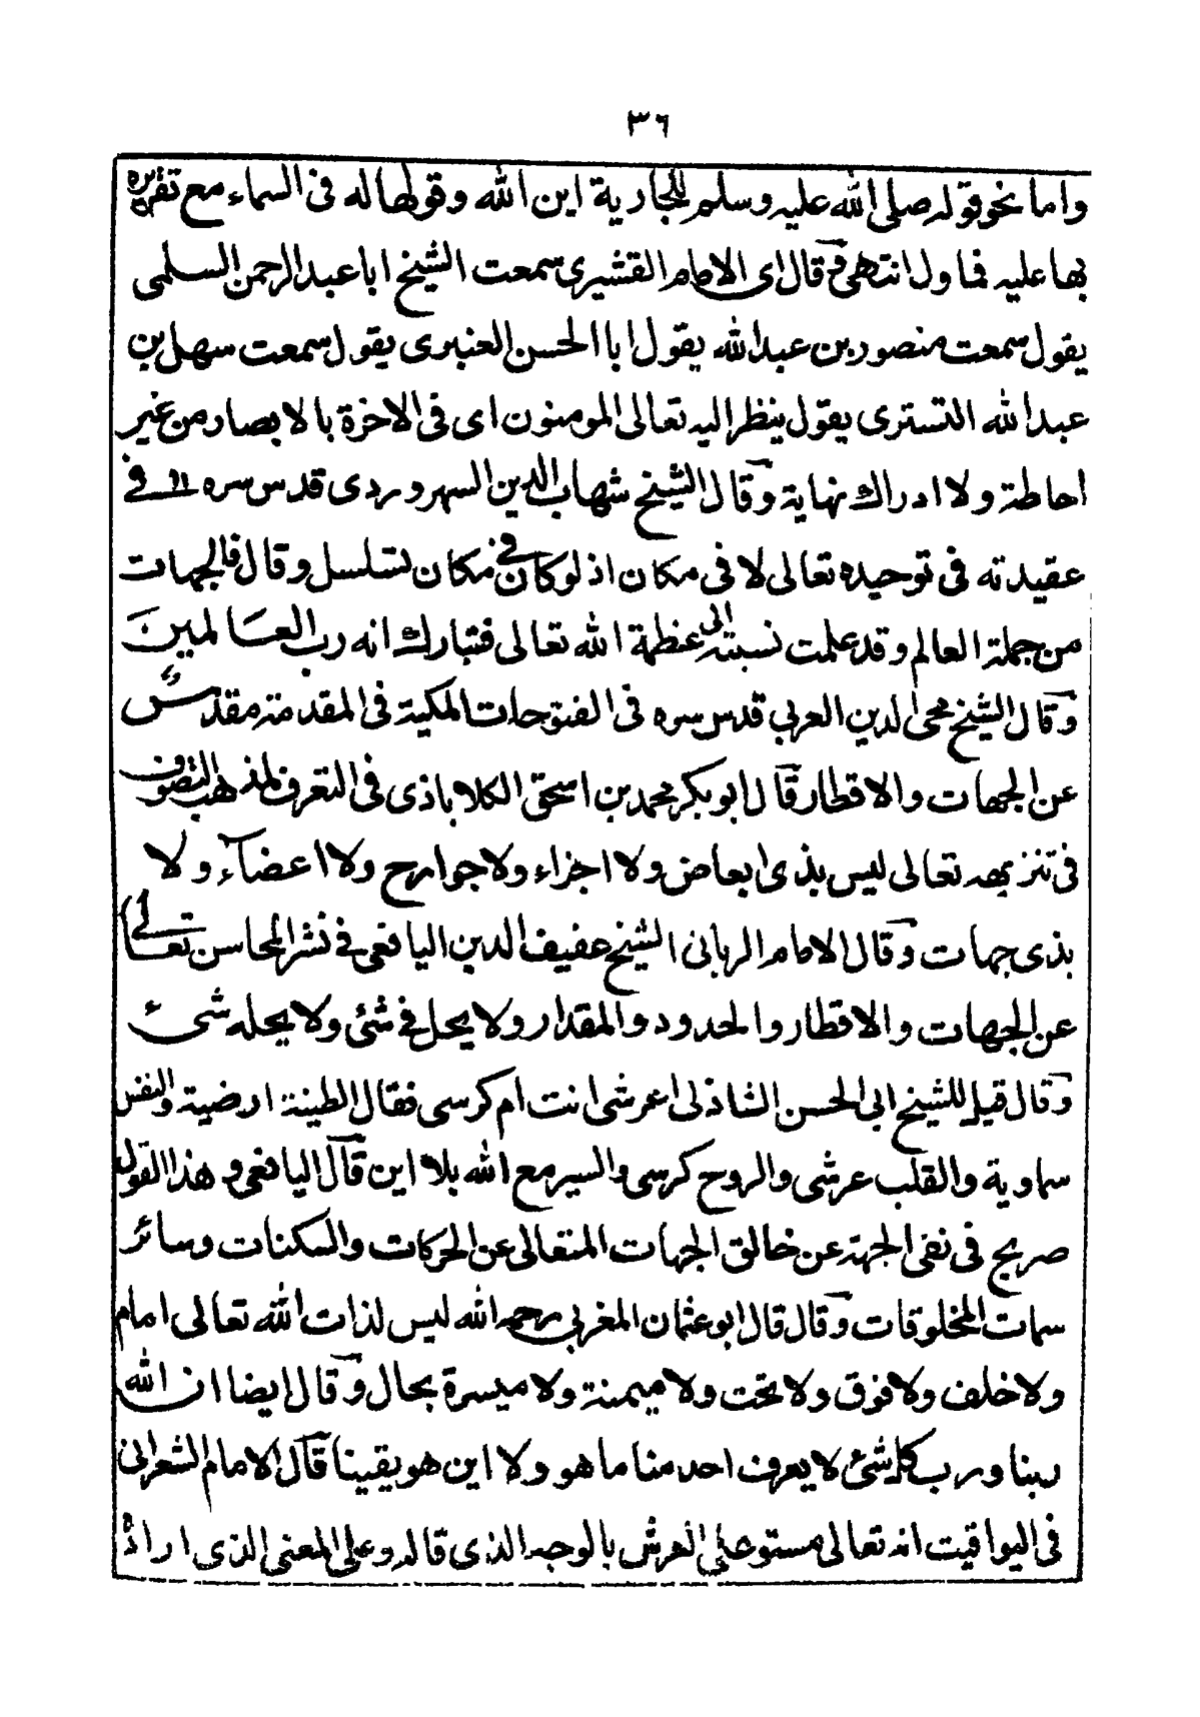 ٣٦
واما نحو قوله صلى الله عليه وسلم للجارية اين الله وقولها له فى السماء مع تقريره
بها عليه فماول انتهى وقال اى الامام القشيرى سمعت الشيخ ابا عبد الرحمن السلمى
يقول سمعت منصور بن عبد الله يقول ابا الحسن العنبرى يقول سمعت سهل بن
عبد الله التسترى يقول ينظر اليه تعالى المومنون اى فى الاخرة بالابصار من غير
احاطة ولا ادراك نهاية وقال الشيخ شهاب الدين السهروردى قدس سره فى
عقيدته فى توحيده تعالى لا فى مكان اذ لو كان فى مكان لتسلسل وقال فالجهات
من جملة العالم وقد علمت نسبته الى عظمة الله تعالى فتبارك انه رب العالمين
وقال الشيخ محى الدين العربي قدس سره فى الفتوحات المكية فى المقدمة مقدس
عن الجهات والاقطار قال ابو بكر محمد بن اسحق الكلاباذى فى التعرف لمذهب التصوف
فى تنزيهه تعالى ليس بذى ابعاض ولا اجزاء ولا جوارح ولا اعضاء ولا
بذى جهات وقال الامام الربانى الشيخ عفيف الدين اليافعى فى نشر المحاسن تعالى
عن الجهات والاقطار والحدود والمقدار ولا يحل فى شئ ولا يحله شىء
وقال قيل للشيخ ابى الحسن الشاذلى اعرشى انت ام كرسى فقال الطينة ارضية والنفس
سماوية والقلب عرشى والروح كرسى والسير مع الله بلا اين قال اليافعى و هذا القول
صريح فى نفى الجهة عن خالق الجهات المتعالى عن الحركات والسكنات وسائر
سمات المخلوقات وقال قال ابو عثمان المغربى رحمه الله ليس لذات الله تعالى امام
ولا خلف ولا فوق ولا تحت ولا ميمنة ولا ميسرة بحال وقال ايضا ان الله
ربنا ورب كل شئ لا يعرف احد منا ما هو ولا اين هو يقينا قال الامام الشعرانى
فى اليواقيت انه تعالى مستو على العرش بالوجه الذى قاله وعلى المعنى الذى اراده